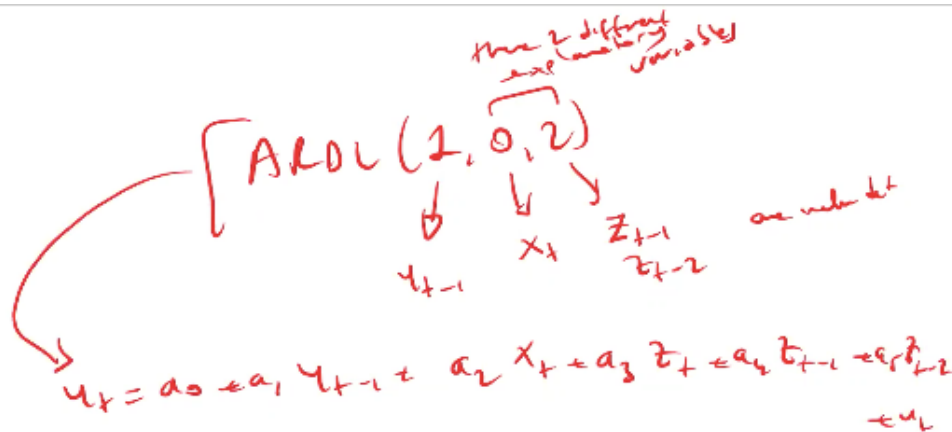 2 different
explanatory
variables
ARDL (1, 0, 2)
y_{t-1} x_t z_{t-1}
z_{t-2}
y_t = a_0 + a_1 y_{t-1} + a_2 x_t + a_3 z_t + a_4 z_{t-1} + a_5 z_{t-2}
+ u_t